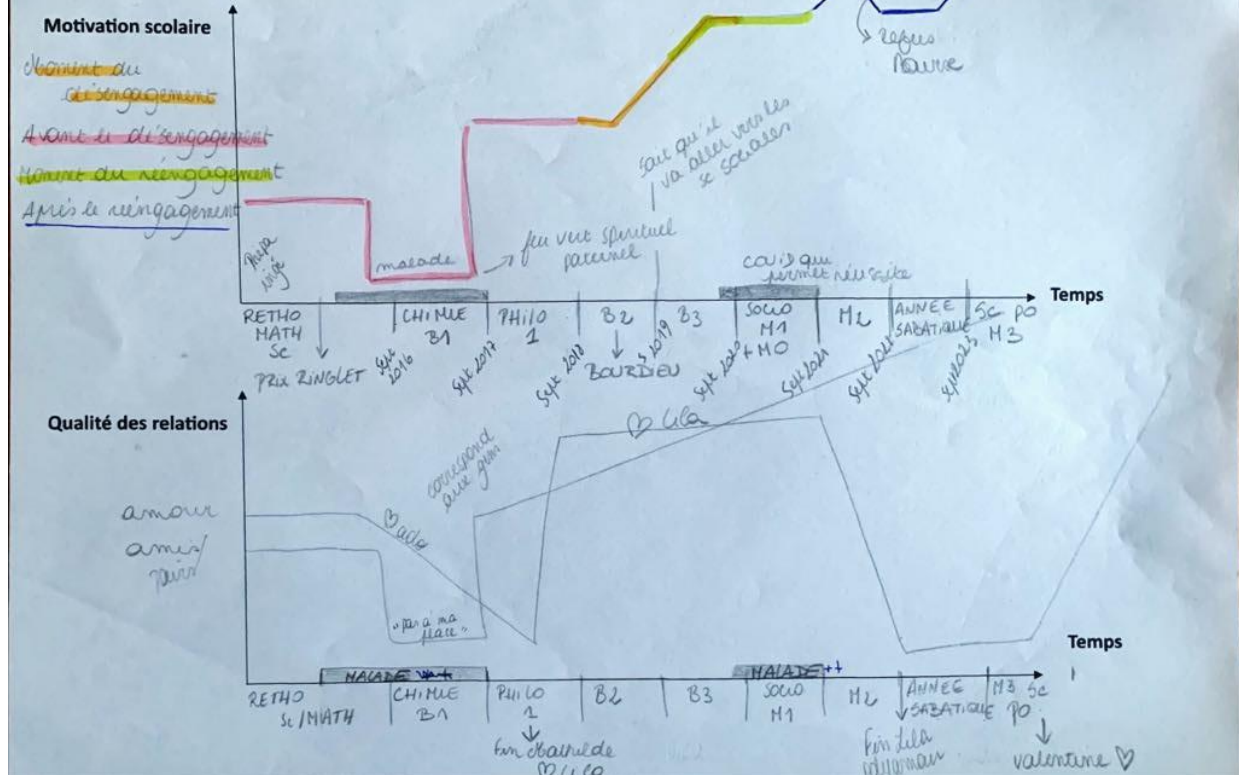 Motivation scolaire
Moment du
désengagement
Avant le désengagement
Moment du réengagement
Après le réengagement
refus
sait qu'il
va aller vers les
sc sociales
feu vert spirituel
paternel
malade
Prépa
covid qui
permet réussite
Temps
RETHO
MATH
Sc
CHIMIE
B1
PHILO
1
B2
B3
SOCIO
M1
+ MO
M2
ANNÉE
SABATIQUE
Sc PO
M3
PRIX RINGLET
Sept
2016
Sept 2017
Sept 2018
BOURDIEU
S 2019
Sept 2020
Sept 2021
Sept 2022
Sept 2023
Qualité des relations
correspond
aux gens
♡ Lila
amour
amis/
pairs
"pas à ma
place"
Temps
MALADE
MALADE ++
RETHO
Sc/MATH
CHIMIE
B1
PHILO
1
B2
B3
SOCIO
M1
M2
ANNEE
SABATIQUE
M3 Sc
PO
Fin Mathilde
♡ Lila
Fin Lila
Valentine ♡